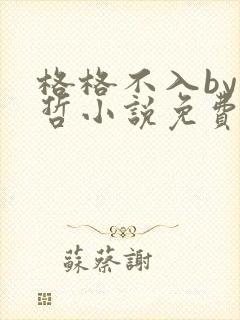 格格不入by
哲小說免費
蘇蔡謝